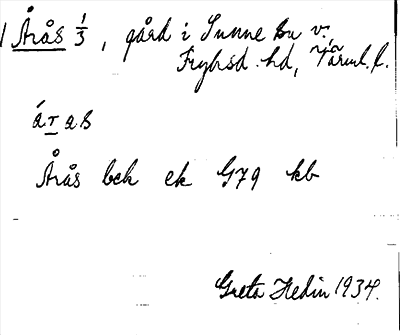 1 Årås 1/3, gård i Sunne sn v.
Fryksd. hd, Värml. l.
åras
Årås bek ek G79 kb
Greta Hedin 1934.